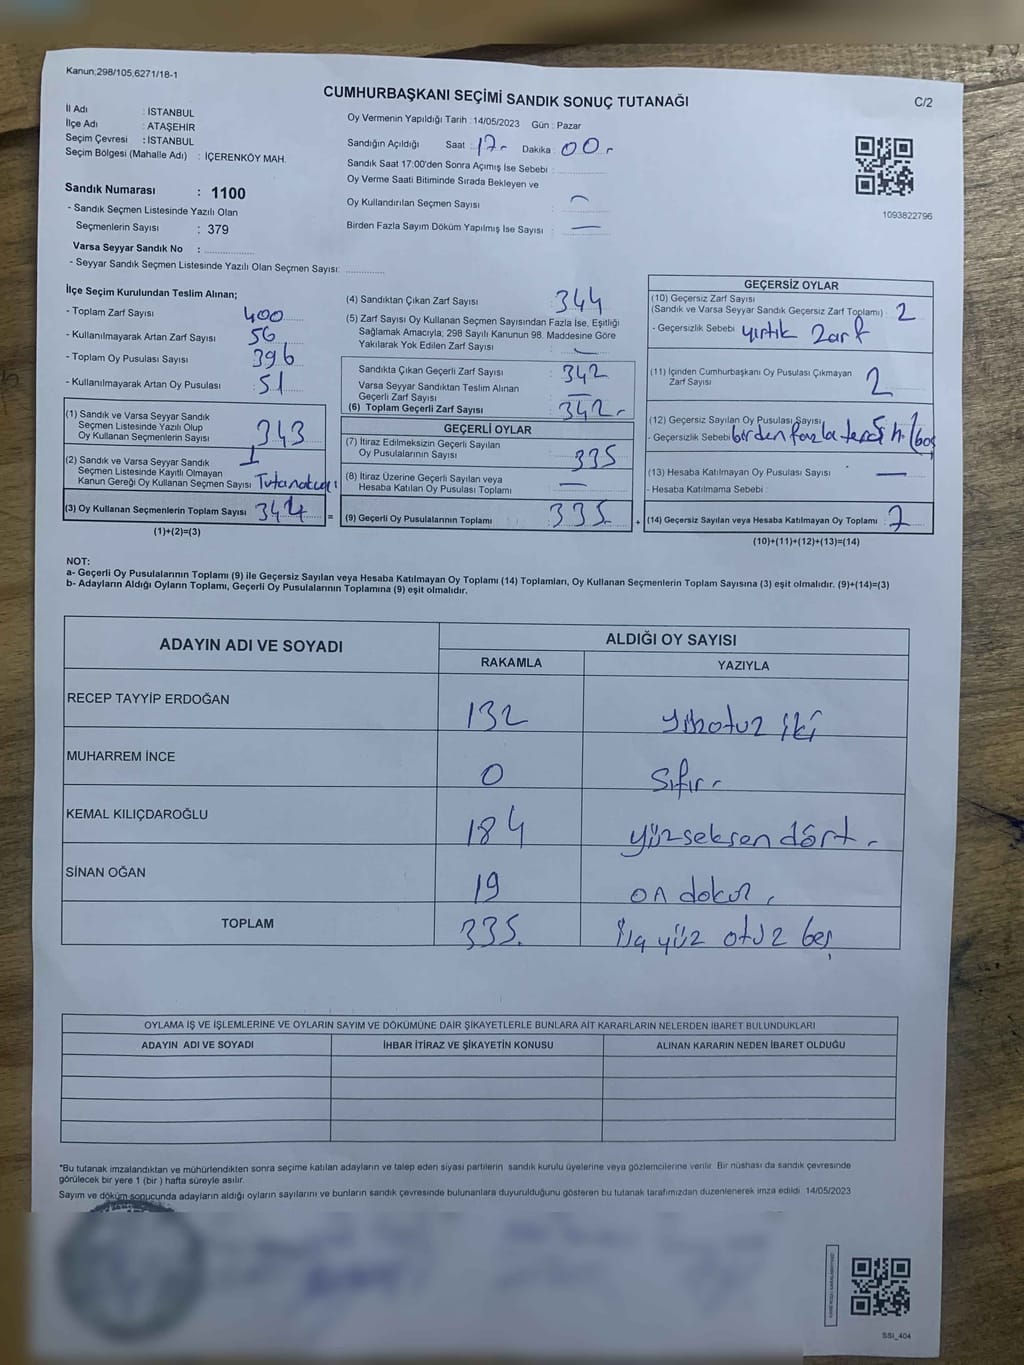 Kanun;298/105,6271/18-1
CUMHURBAŞKANI SEÇİMİ SANDIK SONUÇ TUTANAĞI
C/2
İl Adı : İSTANBUL
İlçe Adı : ATAŞEHİR
Seçim Çevresi : İSTANBUL
Seçim Bölgesi (Mahalle Adı) : İÇERENKÖY MAH.
Sandık Numarası : 1100
- Sandık Seçmen Listesinde Yazılı Olan
Seçmenlerin Sayısı : 379
Varsa Seyyar Sandık No :
- Seyyar Sandık Seçmen Listesinde Yazılı Olan Seçmen Sayısı:
Oy Vermenin Yapıldığı Tarih :14/05/2023 Gün : Pazar
Sandığın Açıldığı Saat : 17 Dakika : 00
Sandık Saat 17:00'den Sonra Açımış İse Sebebi :
Oy Verme Saati Bitiminde Sırada Bekleyen ve
Oy Kullandırılan Seçmen Sayısı : —
Birden Fazla Sayım Döküm Yapılmış İse Sayısı : —
1093822796
İlçe Seçim Kurulundan Teslim Alınan;
- Toplam Zarf Sayısı : 400
- Kullanılmayarak Artan Zarf Sayısı : 56
- Toplam Oy Pusulası Sayısı : 396
- Kullanılmayarak Artan Oy Pusulası : 51
(1) Sandık ve Varsa Seyyar Sandık
Seçmen Listesinde Yazılı Olup
Oy Kullanan Seçmenlerin Sayısı 343
(2) Sandık ve Varsa Seyyar Sandık 1
Seçmen Listesinde Kayıtlı Olmayan
Kanun Gereği Oy Kullanan Seçmen Sayısı
(3) Oy Kullanan Seçmenlerin Toplam Sayısı 344
(1)+(2)=(3)
(4) Sandıktan Çıkan Zarf Sayısı : 344
(5) Zarf Sayısı Oy Kullanan Seçmen Sayısından Fazla İse, Eşitliği
Sağlamak Amacıyla; 298 Sayılı Kanunun 98. Maddesine Göre
Yakılarak Yok Edilen Zarf Sayısı : —
Sandıkta Çıkan Geçerli Zarf Sayısı : 342
Varsa Seyyar Sandıktan Teslim Alınan
Geçerli Zarf Sayısı : —
(6) Toplam Geçerli Zarf Sayısı : 342
GEÇERLİ OYLAR
(7) İtiraz Edilmeksizin Geçerli Sayılan
Oy Pusulalarının Sayısı : 335
(8) İtiraz Üzerine Geçerli Sayılan veya
Hesaba Katılan Oy Pusulası Toplamı : —
= (9) Geçerli Oy Pusulalarının Toplamı : 335
GEÇERSİZ OYLAR
(10) Geçersiz Zarf Sayısı
(Sandık ve Varsa Seyyar Sandık Geçersiz Zarf Toplamı) : 2
- Geçersizlik Sebebi : yırtık zarf
(11) İçinden Cumhurbaşkanı Oy Pusulası Çıkmayan
Zarf Sayısı : 2
(12) Geçersiz Sayılan Oy Pusulası Sayısı
- Geçersizlik Sebebi birden fazla
(13) Hesaba Katılmayan Oy Pusulası Sayısı : —
- Hesaba Katılmama Sebebi :
+ (14) Geçersiz Sayılan veya Hesaba Katılmayan Oy Toplamı : 7
(10)+(11)+(12)+(13)=(14)
NOT:
a- Geçerli Oy Pusulalarının Toplamı (9) ile Geçersiz Sayılan veya Hesaba Katılmayan Oy Toplamı (14) Toplamları, Oy Kullanan Seçmenlerin Toplam Sayısına (3) eşit olmalıdır. (9)+(14)=(3)
b- Adayların Aldığı Oyların Toplamı, Geçerli Oy Pusulalarının Toplamına (9) eşit olmalıdır.
ADAYIN ADI VE SOYADI
ALDIĞI OY SAYISI
RAKAMLA YAZIYLA
RECEP TAYYİP ERDOĞAN 132 yüzotuz iki
MUHARREM İNCE 0 sıfır
KEMAL KILIÇDAROĞLU 184 yüzseksen dört
SİNAN OĞAN 19 on dokuz
TOPLAM 335 üç yüz otuz beş
OYLAMA İŞ VE İŞLEMLERİNE VE OYLARIN SAYIM VE DÖKÜMÜNE DAİR ŞİKAYETLERLE BUNLARA AİT KARARLARIN NELERDEN İBARET BULUNDUKLARI
ADAYIN ADI VE SOYADI İHBAR İTİRAZ VE ŞİKAYETİN KONUSU ALINAN KARARIN NEDEN İBARET OLDUĞU
*Bu tutanak imzalandıktan ve mühürlendikten sonra seçime katılan adayların ve talep eden siyasi partilerin sandık kurulu üyelerine veya gözlemcilerine verilir. Bir nüshası da sandık çevresinde
görülecek bir yere 1 (bir ) hafta süreyle asılır.
Sayım ve döküm sonucunda adayların aldığı oyların sayılarını ve bunların sandık çevresinde bulunanlara duyurulduğunu gösteren bu tutanak tarafımızdan düzenlenerek imza edildi. 14/05/2023
SSI_404